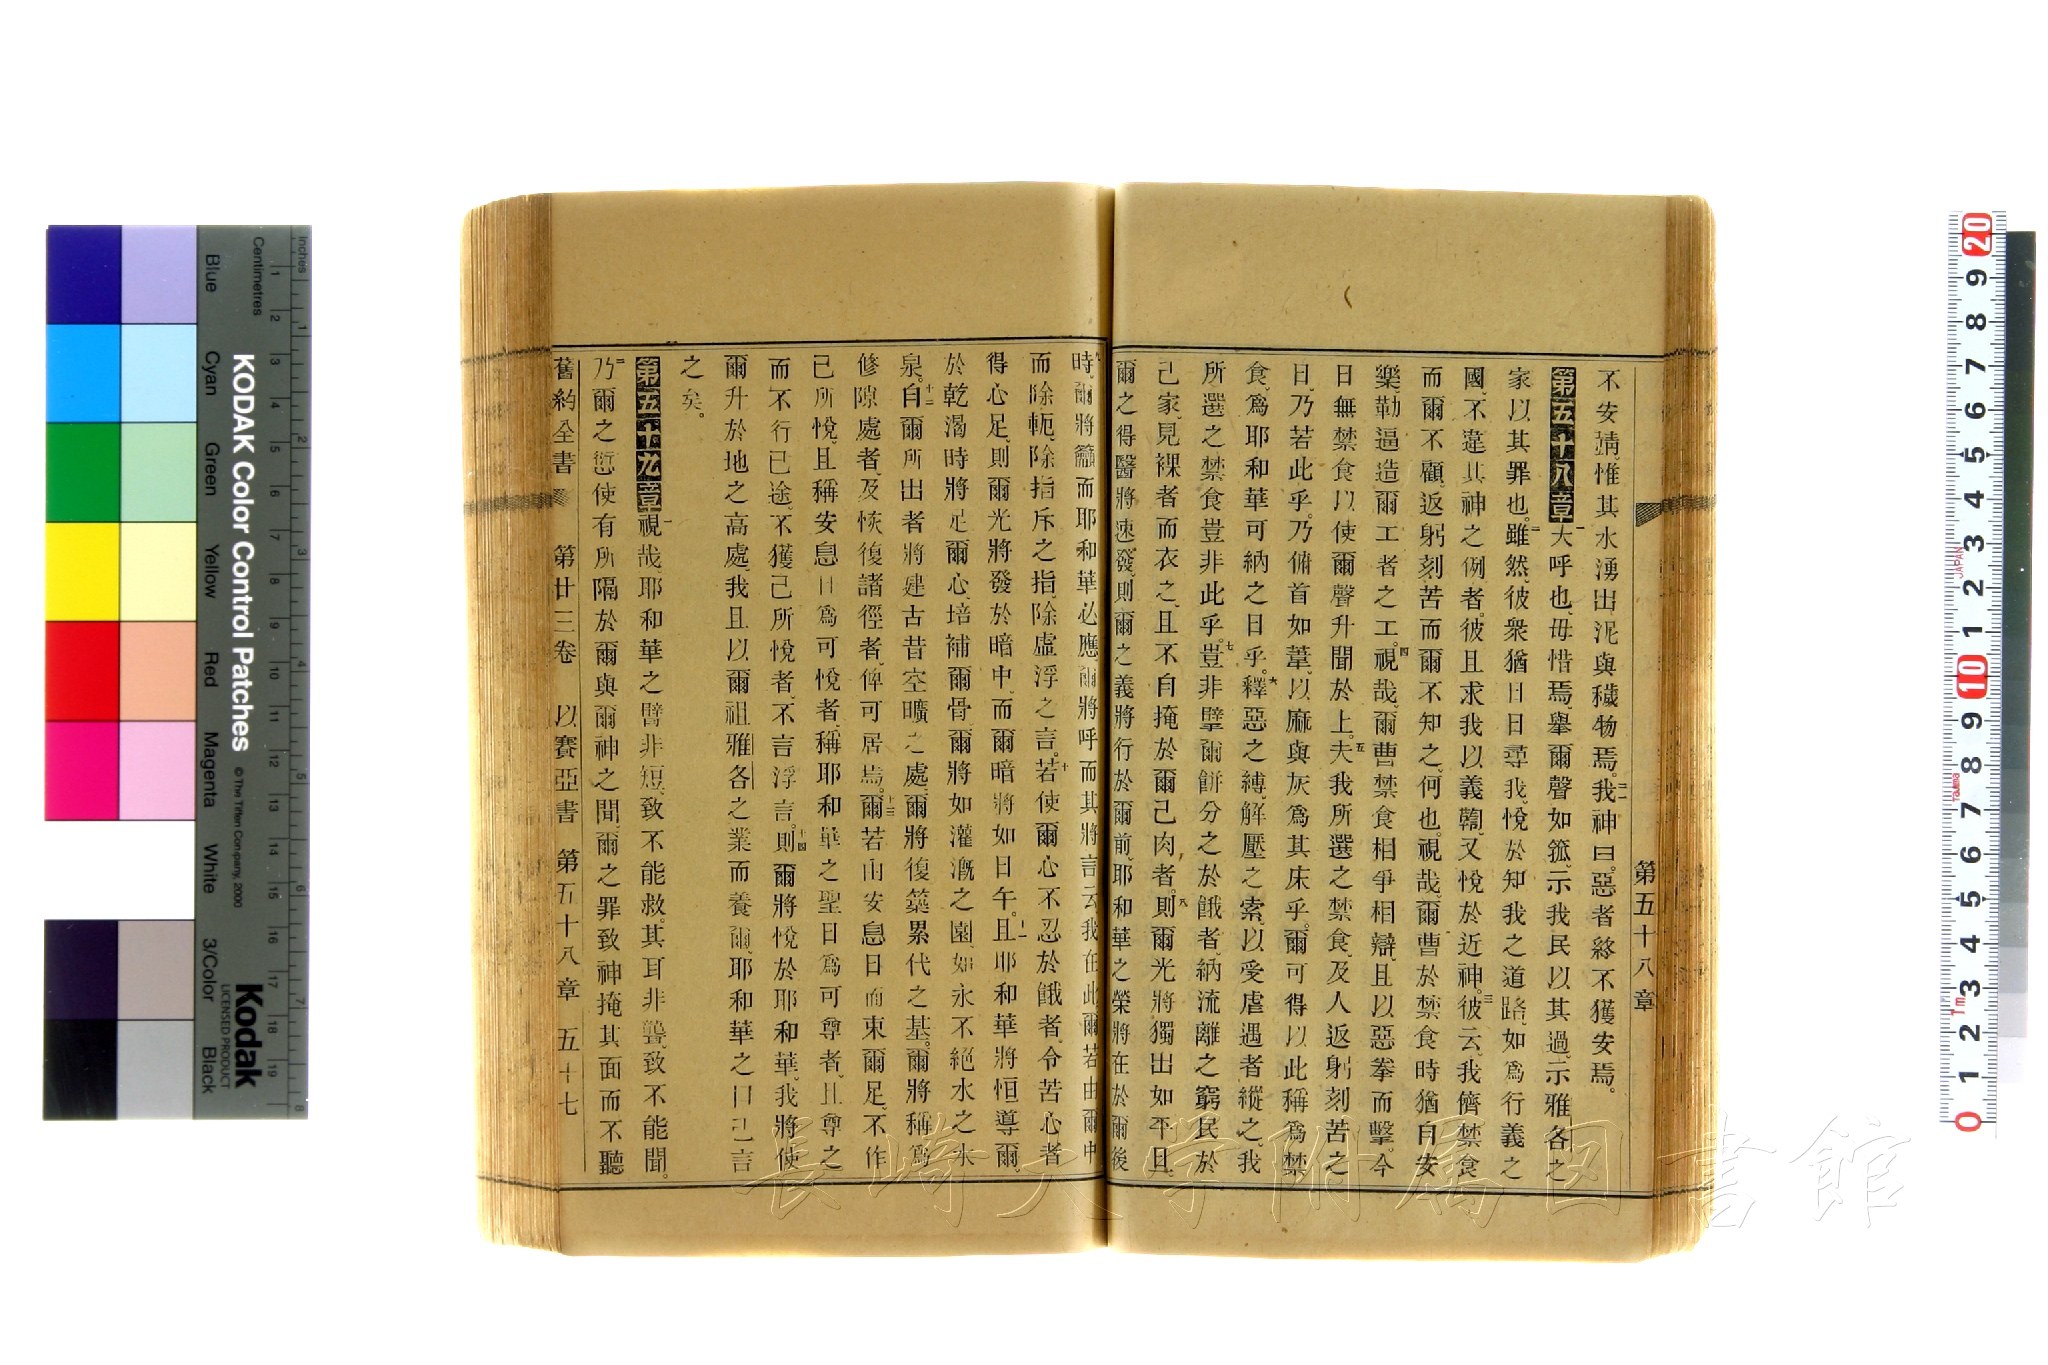 第五十八章
不安靖、惟其水湧出泥與穢物焉。二一我神曰。惡者終不獲安焉。
第五十八章一大呼也、毋惜焉、舉爾聲如箛、示我民以其過、示雅各之
家以其罪也。二雖然、彼衆猶日日尋我、悅於知我之道路、如爲行義之
國、不違其神之例者。彼且求我以義讞、又悅於近神。三彼云、我儕禁食
而爾不顧、返躬刻苦而爾不知之、何也。視哉、爾曹於禁食時猶自安
樂、勒逼造爾工者之工。四視哉、爾曹禁食相爭相辯、且以惡拳而擊。今
日無禁食以使爾聲升聞於上。五夫我所選之禁食、及人返躬刻苦之
日、乃若此乎。乃俯首如葦、以麻與灰爲其床乎。爾可得以此稱爲禁
食、爲耶和華可納之日乎。六釋惡之縛、解壓之索、以受虐遇者縱之、我
所選之禁食豈非此乎。七豈非擘爾餅分之於餓者、納流離之窮民於
己家、見裸者而衣之、且不自掩於爾己肉者。八則爾光將獨出如平旦、
爾之得醫將速發、則爾之義將行於爾前、耶和華之榮將在於爾後
時、爾將籲而耶和華必應、爾將呼而其將言云、我在此、爾若由爾中
而除軛、除指斥之指、除虛浮之言。十若使爾心不忍於餓者、令苦心者
得心足、則爾光將發於暗中、而爾暗將如日午。十一且耶和華將恒導爾、
於乾渴時將足爾心、培補爾骨、爾將如灌漑之園、如永不絕水之水
泉。十二自爾所出者將建古昔空曠之處、爾將復築累代之基。爾將稱爲
修隙處者、及恢復諸徑者、俾可居焉。十三爾若由安息日而束爾足、不作
己所悅、且稱安息日爲可悅者、稱耶和華之聖日爲可尊者、且尊之
而不行己途、不獲己所悅者、不言浮言。十四則爾將悅於耶和華、我將使
爾升於地之高處、我且以爾祖雅各之業而養爾、耶和華之口已言
之矣。
第五十九章一視哉、耶和華之臂非短、致不能救、其耳非聾、致不能聞。
二乃爾之愆使有所隔於爾與爾神之間、爾之罪致神掩其面而不聽
舊約全書 第廿三卷 以賽亞書 第五十八章 五十七
長崎大学附属図書館
KODAK Color Control Patches
© The Tiffen Company, 2000
Kodak
LICENSED PRODUCT
Inches
Centimetres
Blue Cyan Green Yellow Red Magenta White 3/Color Black
1 2 3 4 5 6 7 8 9 10 11 12 13 14 15 16 17 18 19
1 2 3 4 5 6 7 8
20 9 8 7 6 5 4 3 2 1 10 9 8 7 6 5 4 3 2 1 0
JAPAN
1m